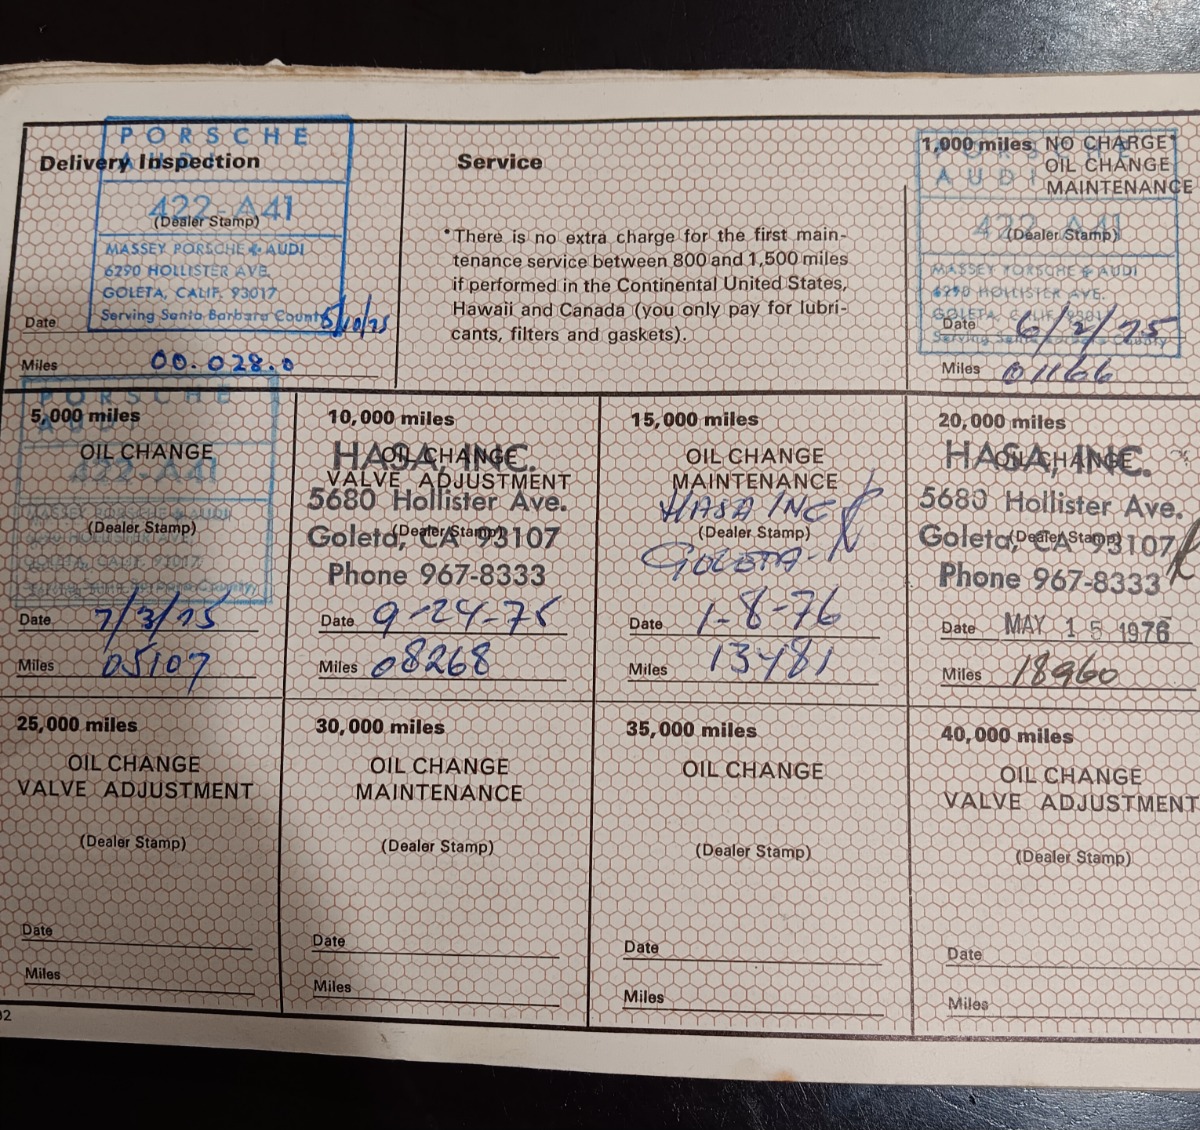 PORSCHE
AUDI
Delivery Inspection
422-A41
(Dealer Stamp)
MASSEY PORSCHE & AUDI
6290 HOLLISTER AVE.
GOLETA, CALIF. 93017
Serving Santa Barbara County
Date 5/10/75
Miles 00.028.0
Service
*There is no extra charge for the first main-
tenance service between 800 and 1,500 miles
if performed in the Continental United States,
Hawaii and Canada (you only pay for lubri-
cants, filters and gaskets).
1,000 miles NO CHARGE*
OIL CHANGE
AUDI
MAINTENANCE
422-A41
(Dealer Stamp)
MASSEY PORSCHE & AUDI
6290 HOLLISTER AVE.
GOLETA, CALIF. 93017
Serving Santa Barbara County
Date 6/2/75
Miles 01166
PORSCHE
5,000 miles
AUDI
OIL CHANGE
422-A41
MASSEY PORSCHE & AUDI
(Dealer Stamp)
6290 HOLLISTER AVE.
GOLETA, CALIF. 93017
Serving Santa Barbara County
Date 7/3/75
Miles 05107
10,000 miles
HASA, INC.
OIL CHANGE
VALVE ADJUSTMENT
5680 Hollister Ave.
(Dealer Stamp)
Goleta, CA 93107
Phone 967-8333
Date 9-24-75
Miles 08268
15,000 miles
OIL CHANGE
MAINTENANCE
HASA INC
(Dealer Stamp)
GOLETA-
Date 1-8-76
Miles 13481
20,000 miles
HASA, INC.
OIL CHANGE
5680 Hollister Ave.
(Dealer Stamp)
Goleta, CA 93107
Phone 967-8333
Date MAY 15 1976
Miles 18960
25,000 miles
OIL CHANGE
VALVE ADJUSTMENT
(Dealer Stamp)
Date
Miles
30,000 miles
OIL CHANGE
MAINTENANCE
(Dealer Stamp)
Date
Miles
35,000 miles
OIL CHANGE
(Dealer Stamp)
Date
Miles
40,000 miles
OIL CHANGE
VALVE ADJUSTMENT
(Dealer Stamp)
Date
Miles